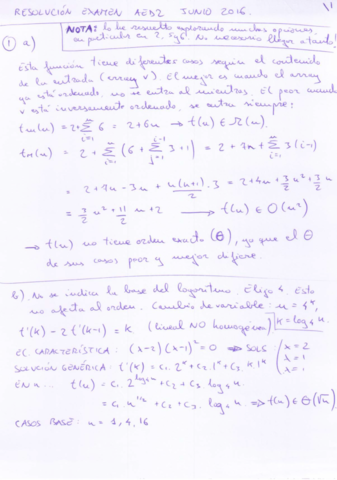 RESOLUCIÓN EXAMEN AED2 JUNIO 2016. 1
NOTA: lo he resuelto explorando muchas opciones,
en particular en 2. No necesario llegar a tanto!
① a)
Esta función tiene diferentes casos según el contenido
de la entrada (array v). El mejor es cuando el array
ya está ordenado, no se entra al mientras. El peor cuando
v está inversamente ordenado, se entra siempre:
tm(n) = 2 + Σ_{i=1}^{n} 6 = 2 + 6n → t(n) ∈ Ω(n).
tM(n) = 2 + Σ_{i=1}^{n} (6 + Σ_{j=1}^{i-1} 3 + 1) = 2 + 7n + Σ_{i=1}^{n} 3(i-1)
= 2 + 7n - 3n + n(n+1)/2 · 3 = 2 + 4n + 3/2 n² + 3/2 n
= 3/2 n² + 11/2 n + 2 → t(n) ∈ O(n²)
→ t(n) no tiene orden exacto (Θ), ya que el Θ
de sus casos peor y mejor difiere.
b) No se indica la base del logaritmo. Elijo 4. Esto
no afecta al orden. Cambio de variable: n = 4^k,
t'(k) - 2 t'(k-1) = k (lineal NO homogénea) k = log₄ n
EC. CARACTERÍSTICA: (x-2)(x-1)² = 0 ⇒ SOLS x = 2 λ = 1 λ = 1
SOLUCIÓN GENÉRICA: t'(k) = c₁ 2^k + c₂ 1^k + c₃ k 1^k
EN n... t(n) = c₁ 2^{log₄ n} + c₂ + c₃ log₄ n
= c₁ n^{1/2} + c₂ + c₃ · log₄ n ⇒ t(n) ∈ Θ(√n)
CASOS BASE: n = 1, 4, 16